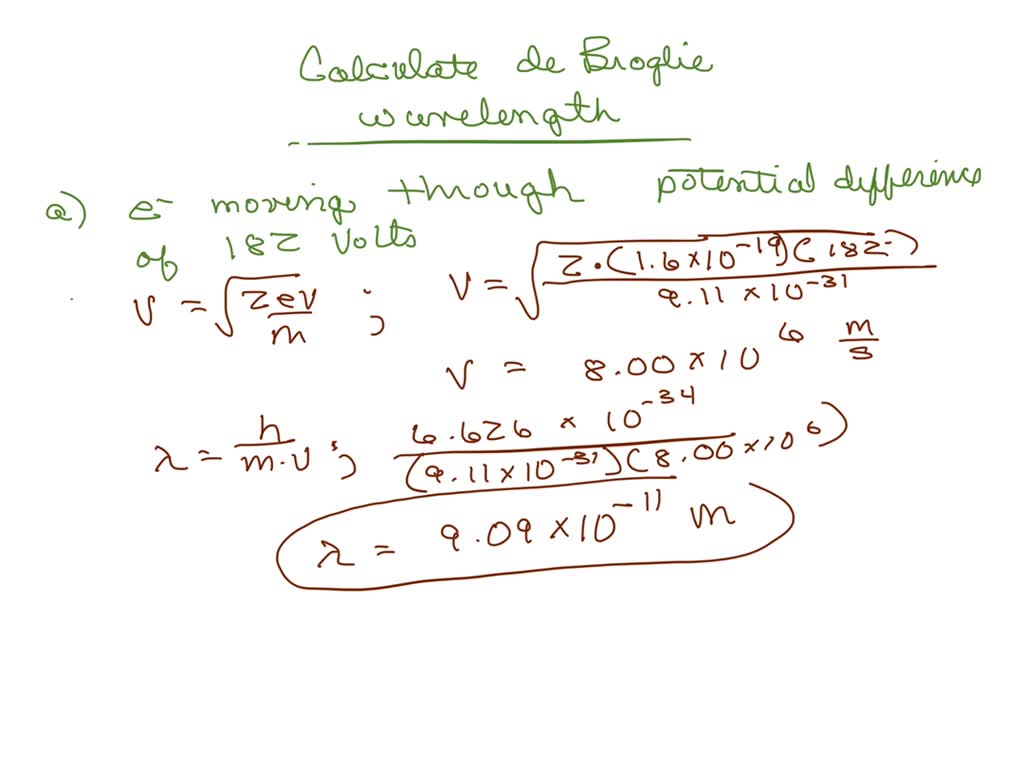 Calculate de Broglie
wavelength
a) e⁻ moving through potential difference
of 182 Volts
v = √(2eV/m) ; v = √(2·(1.6×10⁻¹⁹)(182)/9.11×10⁻³¹)
v = 8.00 × 10⁶ m/s
λ = h/m·v ; 6.626 × 10⁻³⁴/(9.11×10⁻³¹)(8.00×10⁶)
λ = 9.09×10⁻¹¹ m